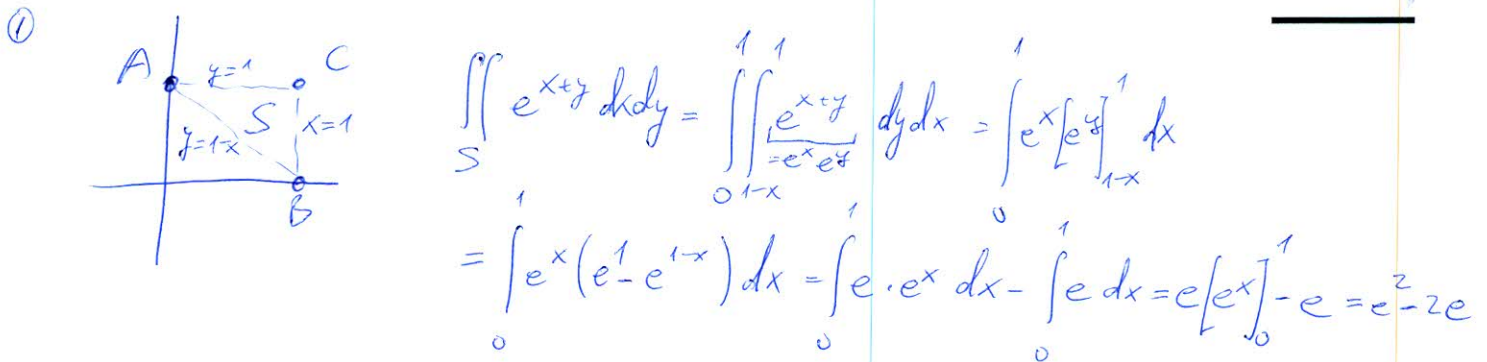 ①
A y=1 C
S x=1
y=1-x
B
∬_S e^{x+y} dxdy = ∫_0^1 ∫_{1-x}^1 e^{x+y} dydx = ∫_0^1 e^x [e^y]_{1-x}^1 dx
=e^x e^y
= ∫_0^1 e^x (e^1 - e^{1-x}) dx = ∫_0^1 e · e^x dx - ∫_0^1 e dx = e [e^x]_0^1 - e = e^2 - 2e